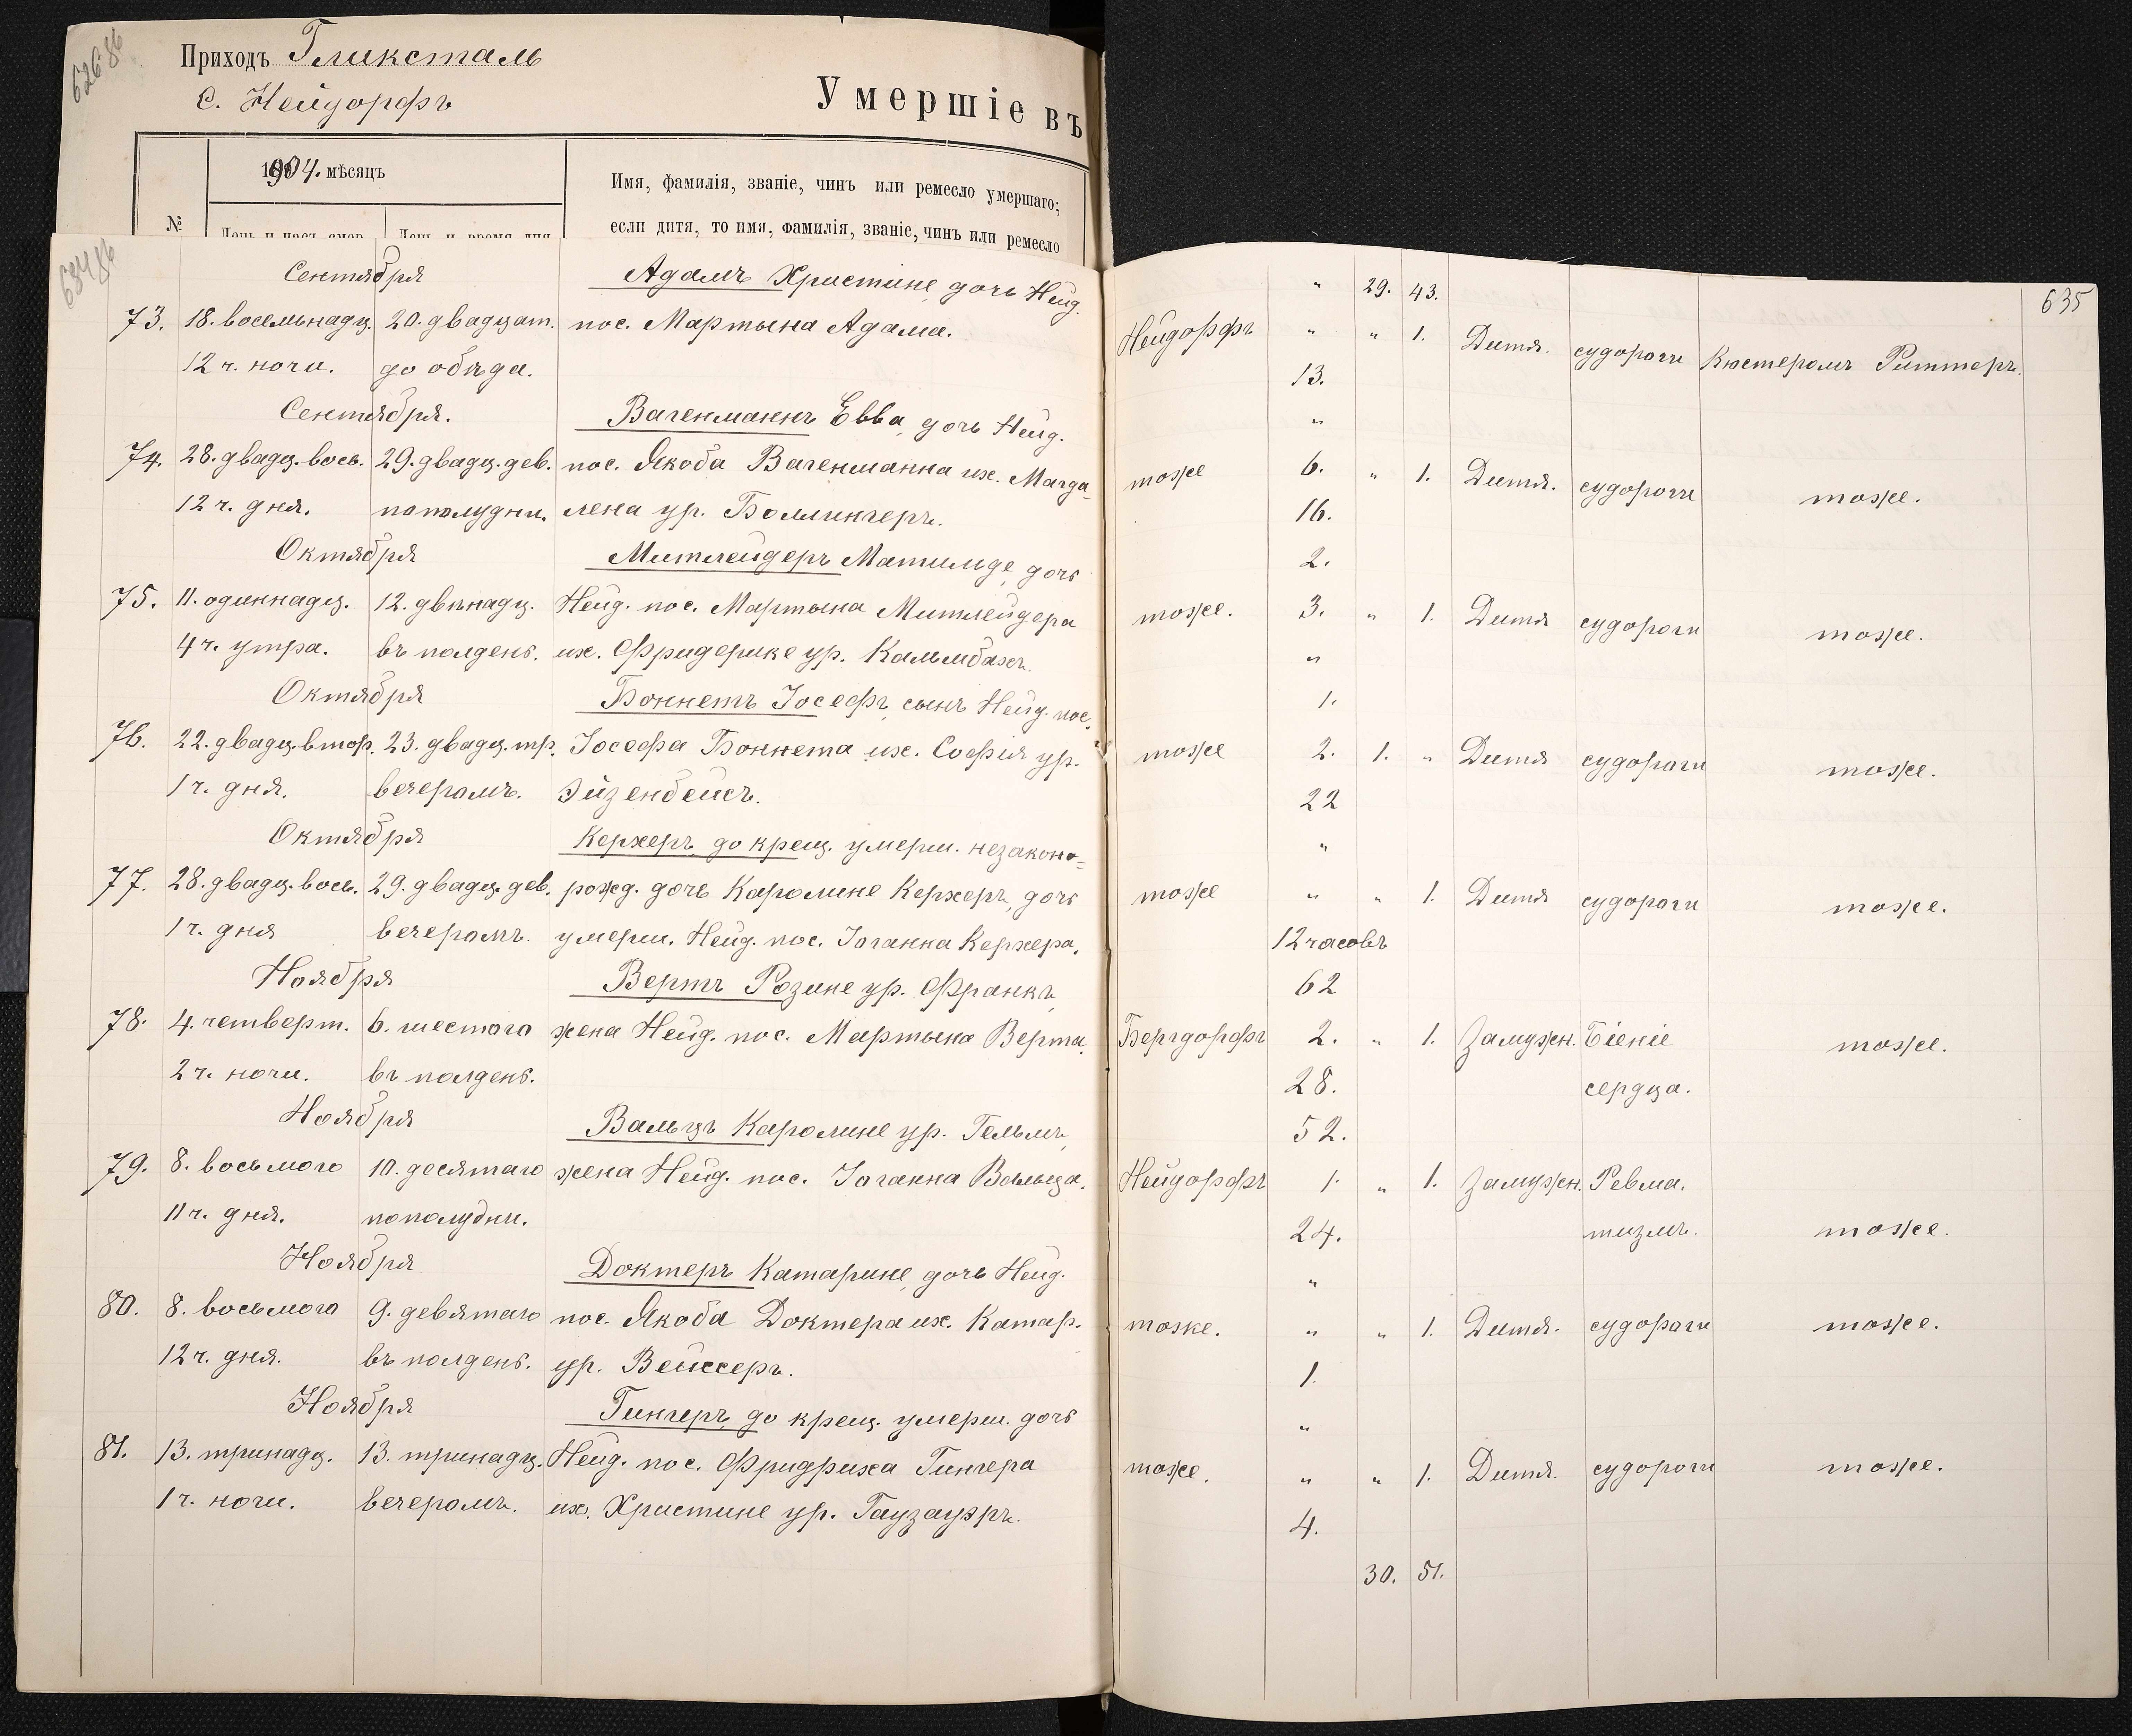 626 86
Приходъ Гликсталь
С. Нейдорфъ
Умершіе въ
1904. мѣсяцъ
Имя, фамилія, званіе, чинъ или ремесло умершаго;
№
если дитя, то имя, фамилія, званіе, чинъ или ремесло
634 86
635
Сентября Адамъ Христине, дочь Нейд. " 29. 43.
73. 18. восемьнадц. 20. двадцат. пос. Мартына Адама. Нейдорфъ " " 1. Дитя. судороги Кюстеромъ Риттеръ.
12 ч. ночи. до обѣда. 13.
Сентября. Вагенманнъ Евва, дочь Нейд. "
74. 28. двадц. вось. 29. двадц. дев. пос. Якоба Вагенманна их. Магда- тоже 6. " 1. Дитя. судороги тоже.
12 ч. дня. пополудни. лена ур. Боллингеръ. 16.
Октября Митлейдеръ Матильде, дочь 2.
75. 11. одиннадц. 12. двѣнадц. Нейд. пос. Мартына Митлейдера тоже. 3. " 1. Дитя судороги тоже.
4 ч. утра. въ полдень. их. Фридерике ур. Кальмбахъ. "
Октября Боннетъ Іосефъ, сынъ Нейд. пос. 1.
76. 22. двадц. втор. 23. двадц. тр. Іосефа Боннета их. Софія ур. тоже 2. 1. " Дитя судороги тоже.
1 ч. дня. вечеромъ. Эйзенбейсъ. 22
Октября Керхеръ, до крещ. умерш. незаконо- "
77. 28. двадц. вось. 29. двадц. дев. рожд. дочь Каролине Керхеръ, дочь тоже " " 1. Дитя судороги тоже.
1 ч. дня вечеромъ. умерш. Нейд. пос. Іоганна Керхера. 12 часовъ
Ноября Вертъ Розине ур. Франкъ, 62
78. 4. четверт. 6. шестого жена Нейд. пос. Мартына Верта. Бергдорфъ 2. " 1. Замужн. Біеніе тоже.
2 ч. ночи. въ полдень. 28. сердца.
Ноября Вальцъ Каролине ур. Гельмъ, 52.
79. 8. восьмого 10. десятаго жена Нейд. пос. Іоганна Вальца. Нейдорфъ 1. " 1. Замужн. Ревма.
11 ч. дня. пополудни. 24. тизмъ. тоже.
Ноября Доктеръ Катарине, дочь Нейд. "
80. 8. восьмого 9. девятаго пос. Якоба Доктера их. Катар. тоже. " " 1. Дитя. судороги тоже.
12 ч. дня. въ полдень. ур. Вейссеръ. 1.
Ноября Гингеръ, до крещ. умерш. дочь "
81. 13. тринадц. 13. тринадц. Нейд. пос. Фридриха Гингера тоже. " " 1. Дитя. судороги тоже.
1 ч. ночи. вечеромъ. их. Христине ур. Гаузауэръ. 4.
30. 51.